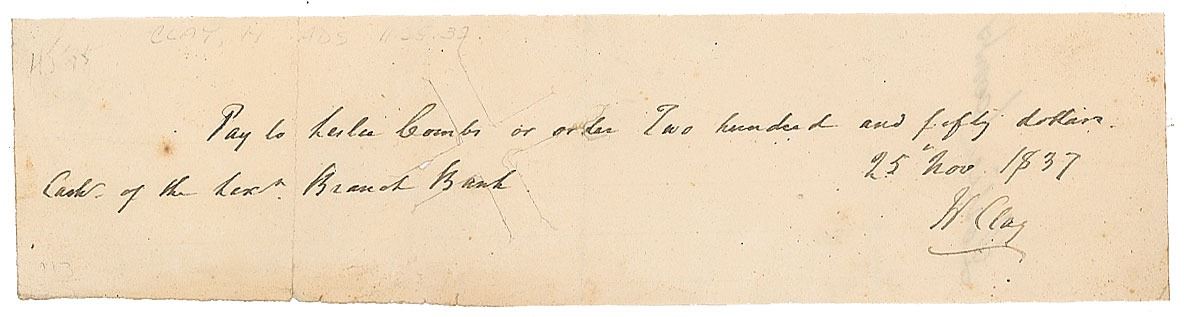 CLAY, H ADS 11.25.37
Pay to Leslie Combs or order Two hundred and fifty dollars.
25 Nov 1837
Cashr. of the Lexn. Branch Bank
H Clay